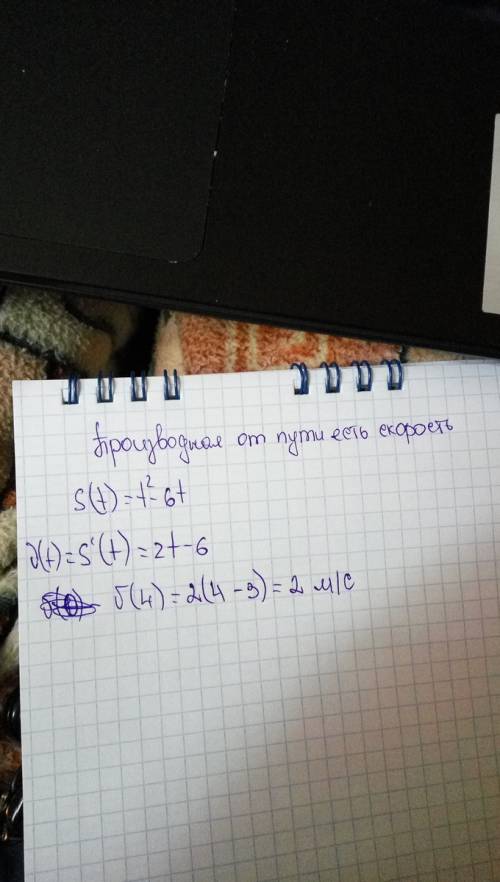 Производная от пути есть скорость
S(t) = t² - 6t
υ(t) = S'(t) = 2t - 6
υ(4) = 2(4 - 3) = 2 м/с